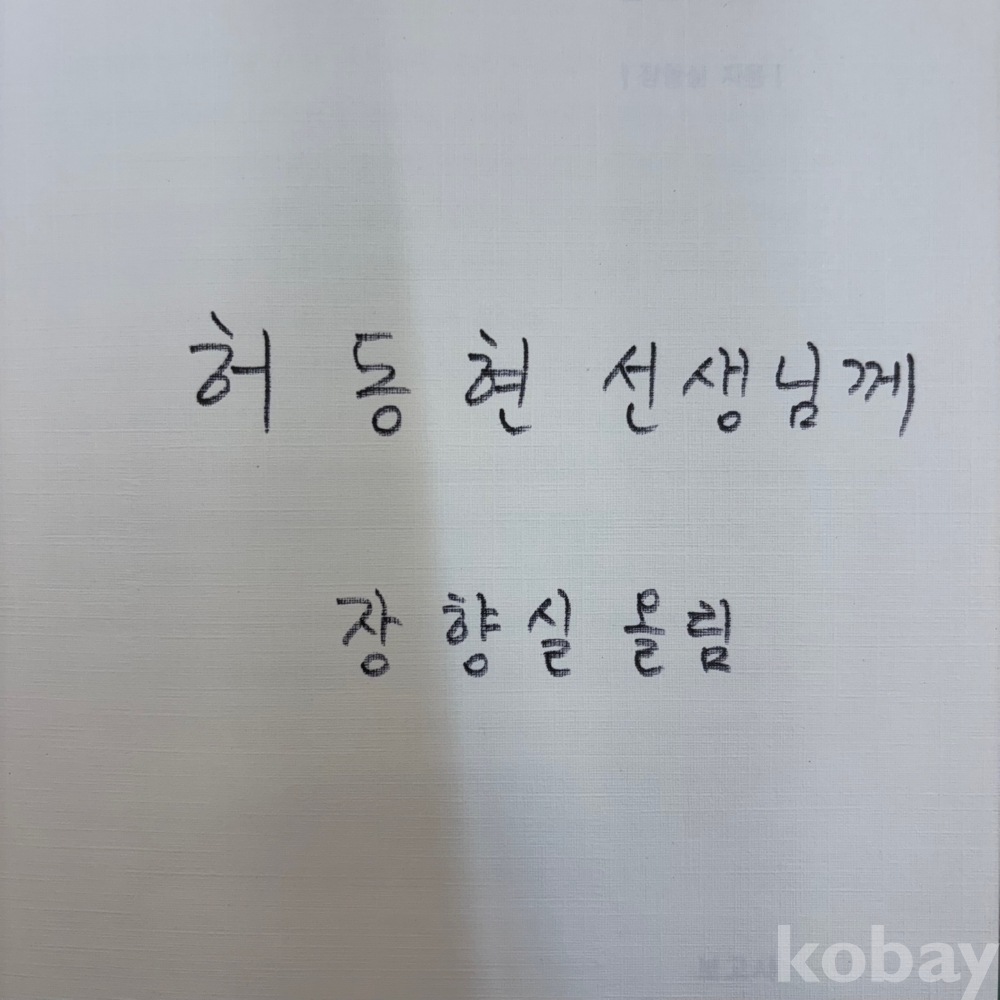 허 동 현 선생님께
장 향 실 올림
kobay